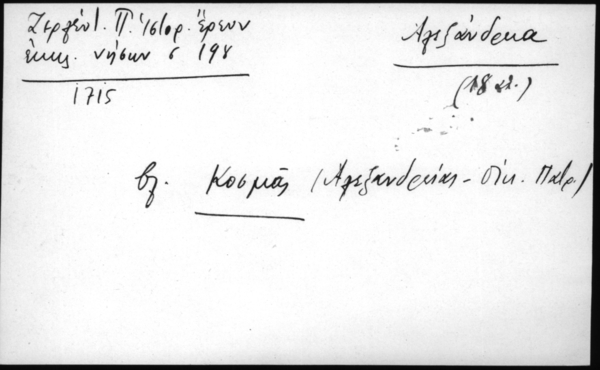 Ζερλέντ. Π. Ἱστορ. ἔρευν
ἐκκλ. νήσων σ 198
1715
Ἀλεξάνδρεια
(18 αι.)
βλ. Κοσμᾶς (Ἀλεξανδρείας - Οἰκ. Πατρ.)